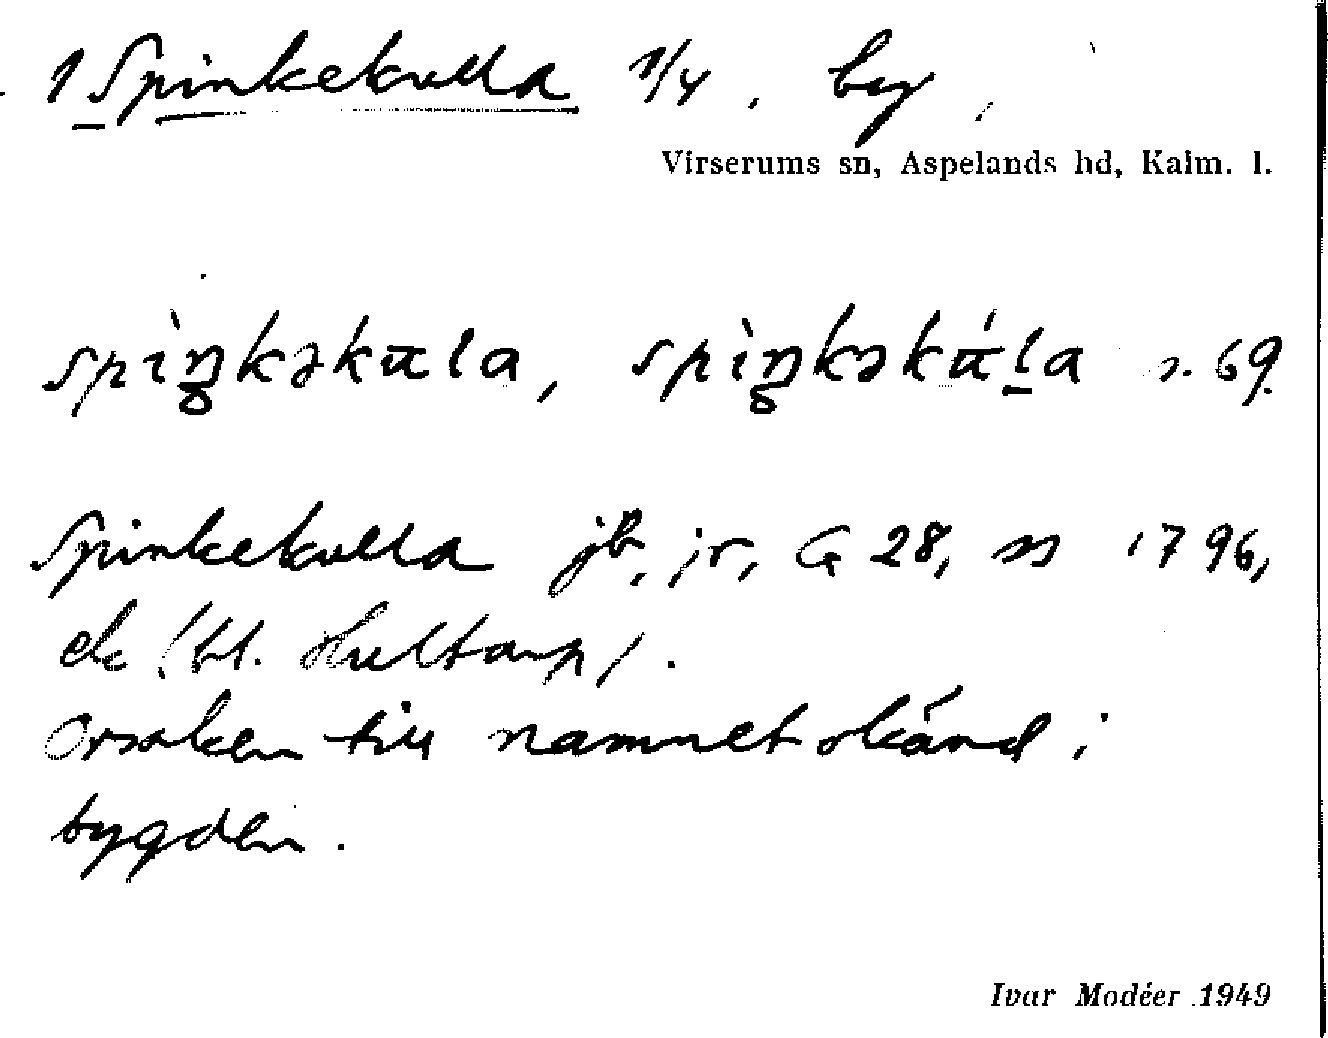 1 Spinkekulla 1/4, by,
Virserums sn, Aspelands hd, Kalm. l.
spìŋkəkula, spìŋkəkúla s. 69.
Spinkekulla jb, jr, G 28, 1796,
ek (bl. Hultarp).
Orsaken till namnet okänd i
bygden.
Ivar Modéer 1949